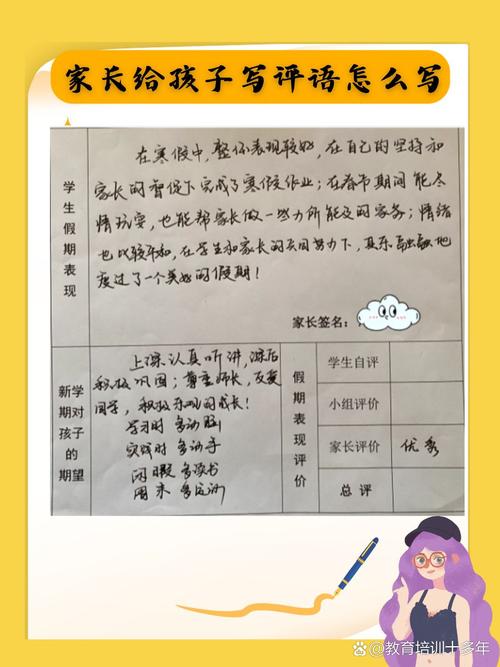 家长给孩子写评语怎么写
学生假期表现
在寒假中,整体表现较好,在自己的坚持和
家长的督促下完成了寒假作业;在春节期间能尽
情玩耍,也能帮家长做一些力所能及的家务;情绪
也比较平和,在学生和家长的共同努力下,其乐融融地
度过了一个美好的假期!
家长签名:
新学期对孩子的期望
上课认真听讲,课后
积极巩固;尊重师长,友爱
同学,积极乐观的成长!
学习时 多动脑
实践时 多动手
闲暇 多读书
周末 多运动
假期表现评价
学生自评
小组评价
家长评价 优秀
总评
@教育培训十多年